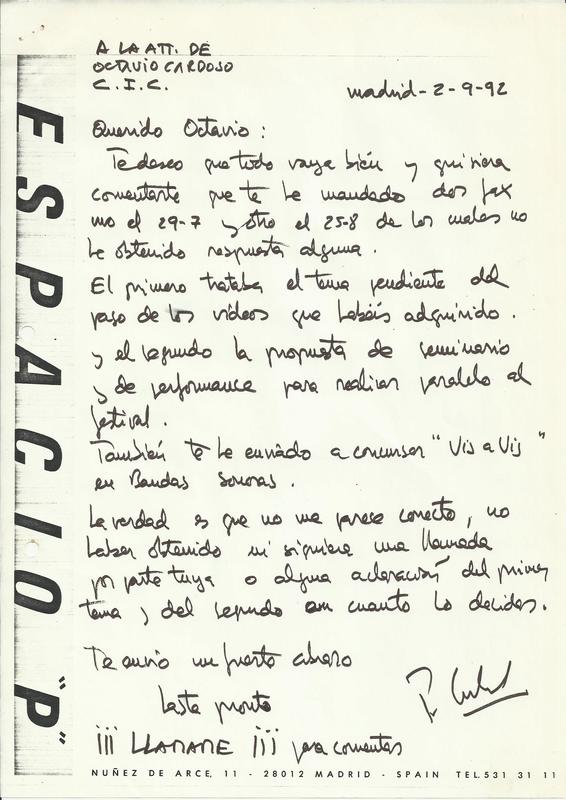 A LA ATT. DE
OCTAVIO CARDOSO
C.I.C.
madrid - 2-9-92
Querido Octavio :
Te deseo que todo vaya bién y quisiera
comentarte que te he mandado dos fax
uno el 29-7 y otro el 25-8 de los cuales no
he obtenido respuesta alguna.
El primero trataba el tema pendiente del
paso de los vídeos que habéis adquirido.
y el segundo la propuesta de seminario
y de performance para realizar paralelo al
festival.
También te he enviado a concurso "Vis a Vis"
en Bandas Sonoras.
La verdad es que no me parece correcto, no
haber obtenido ni siquiera una llamada
por parte tuya o alguna aclaración del primer
tema y del segundo en cuanto lo decidas.
Te envio un fuerte abrazo
hasta pronto
¡¡¡ LLAMAME ¡¡¡ para comentar
ESPACIO "P"
NUÑEZ DE ARCE, 11 - 28012 MADRID - SPAIN TEL. 531 31 11